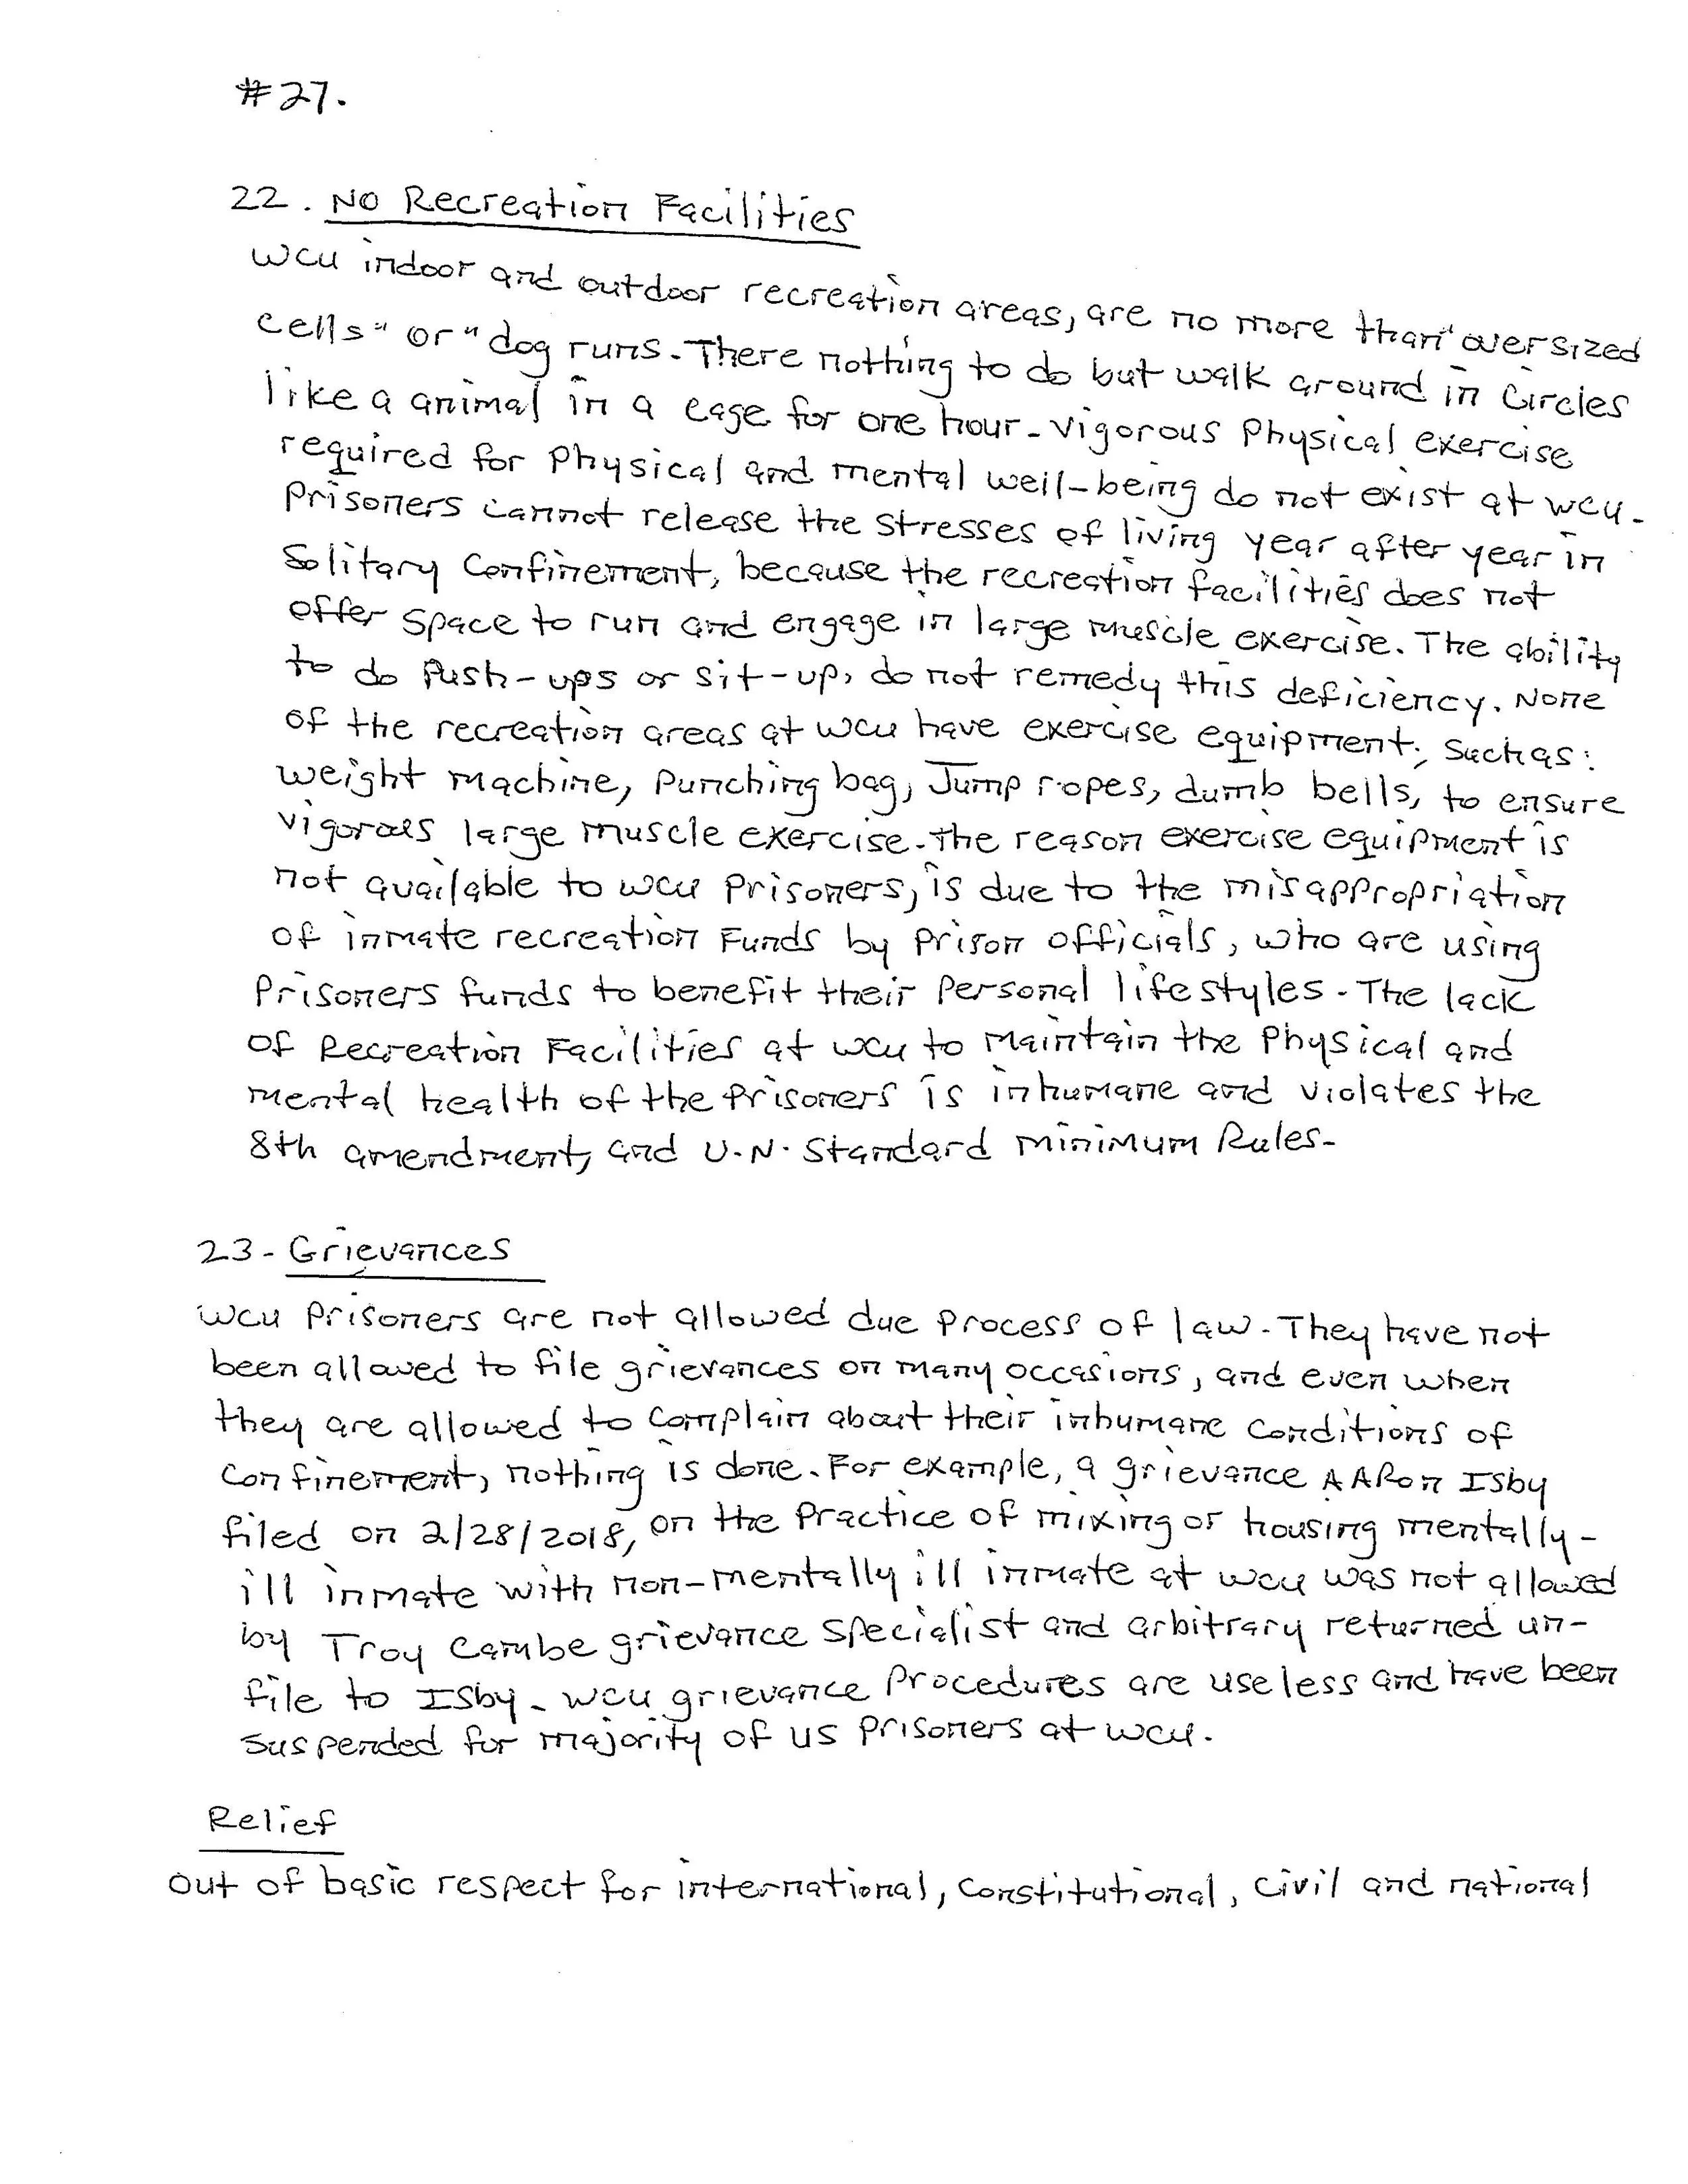 #27.
22. No Recreation Facilities
WCU indoor and outdoor recreation areas, are no more than "oversized
cells" or "dog runs. There nothing to do but walk around in circles
like a animal in a cage for one hour. Vigorous Physical exercise
required for Physical and mental well-being do not exist at WCU.
Prisoners cannot release the stresses of living year after year in
Solitary Confinement, because the recreation facilities does not
offer space to run and engage in large muscle exercise. The ability
to do Push-ups or sit-up, do not remedy this deficiency. None
of the recreation areas at WCU have exercise equipment; such as:
weight machine, Punching bag, Jump ropes, dumb bells, to ensure
vigorous large muscle exercise. The reason exercise equipment is
not available to WCU Prisoners, is due to the misappropriation
of inmate recreation Funds by Prison officials, who are using
Prisoners funds to benefit their Personal lifestyles. The lack
of Recreation Facilities at WCU to Maintain the Physical and
mental health of the Prisoners is inhumane and violates the
8th amendment, and U.N. Standard minimum Rules.
23- Grievances
WCU Prisoners are not allowed due Process of law. They have not
been allowed to file grievances on many occasions, and even when
they are allowed to Complain about their inhumane Conditions of
Confinement, nothing is done. For example, a grievance AARon Isby
filed on 2/28/2018, on the Practice of mixing or housing mentally-
ill inmate with non-mentally ill inmate at WCU was not allowed
by Troy Cambe grievance Specialist and arbitrary returned un-
file to Isby. WCU grievance Procedures are useless and have been
Suspended for majority of us Prisoners at WCU.
Relief
Out of basic respect for international, Constitutional, Civil and national